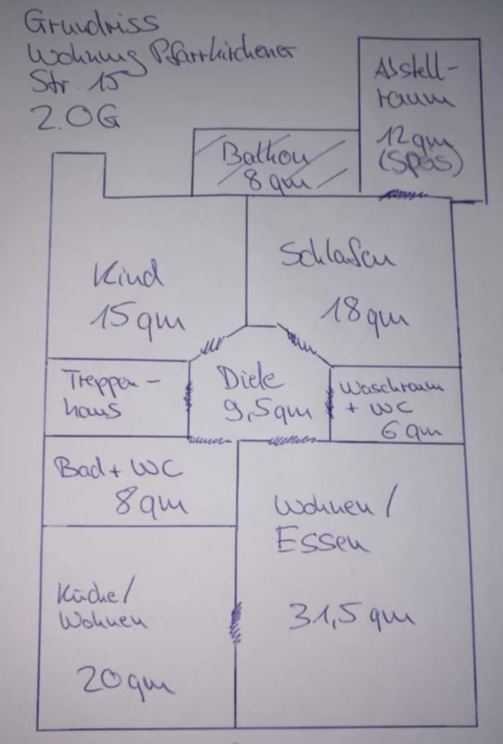 Grundriss
Wohnung Pfarrkirchener
Str. 15
2.OG
Abstell-
raum
12qm
(Spos)
Balkon
8qm
Kind
15qm
Schlafen
18qm
Treppen-
haus
Diele
9,5qm
Waschraum
+ WC
6qm
Bad + WC
8qm
Wohnen /
Essen
31,5 qm
Küche/
Wohnen
20qm